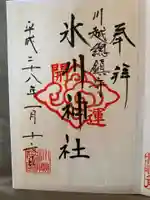 奉拝
川越総鎮守
氷川神社
開運
平成二十八年一月十